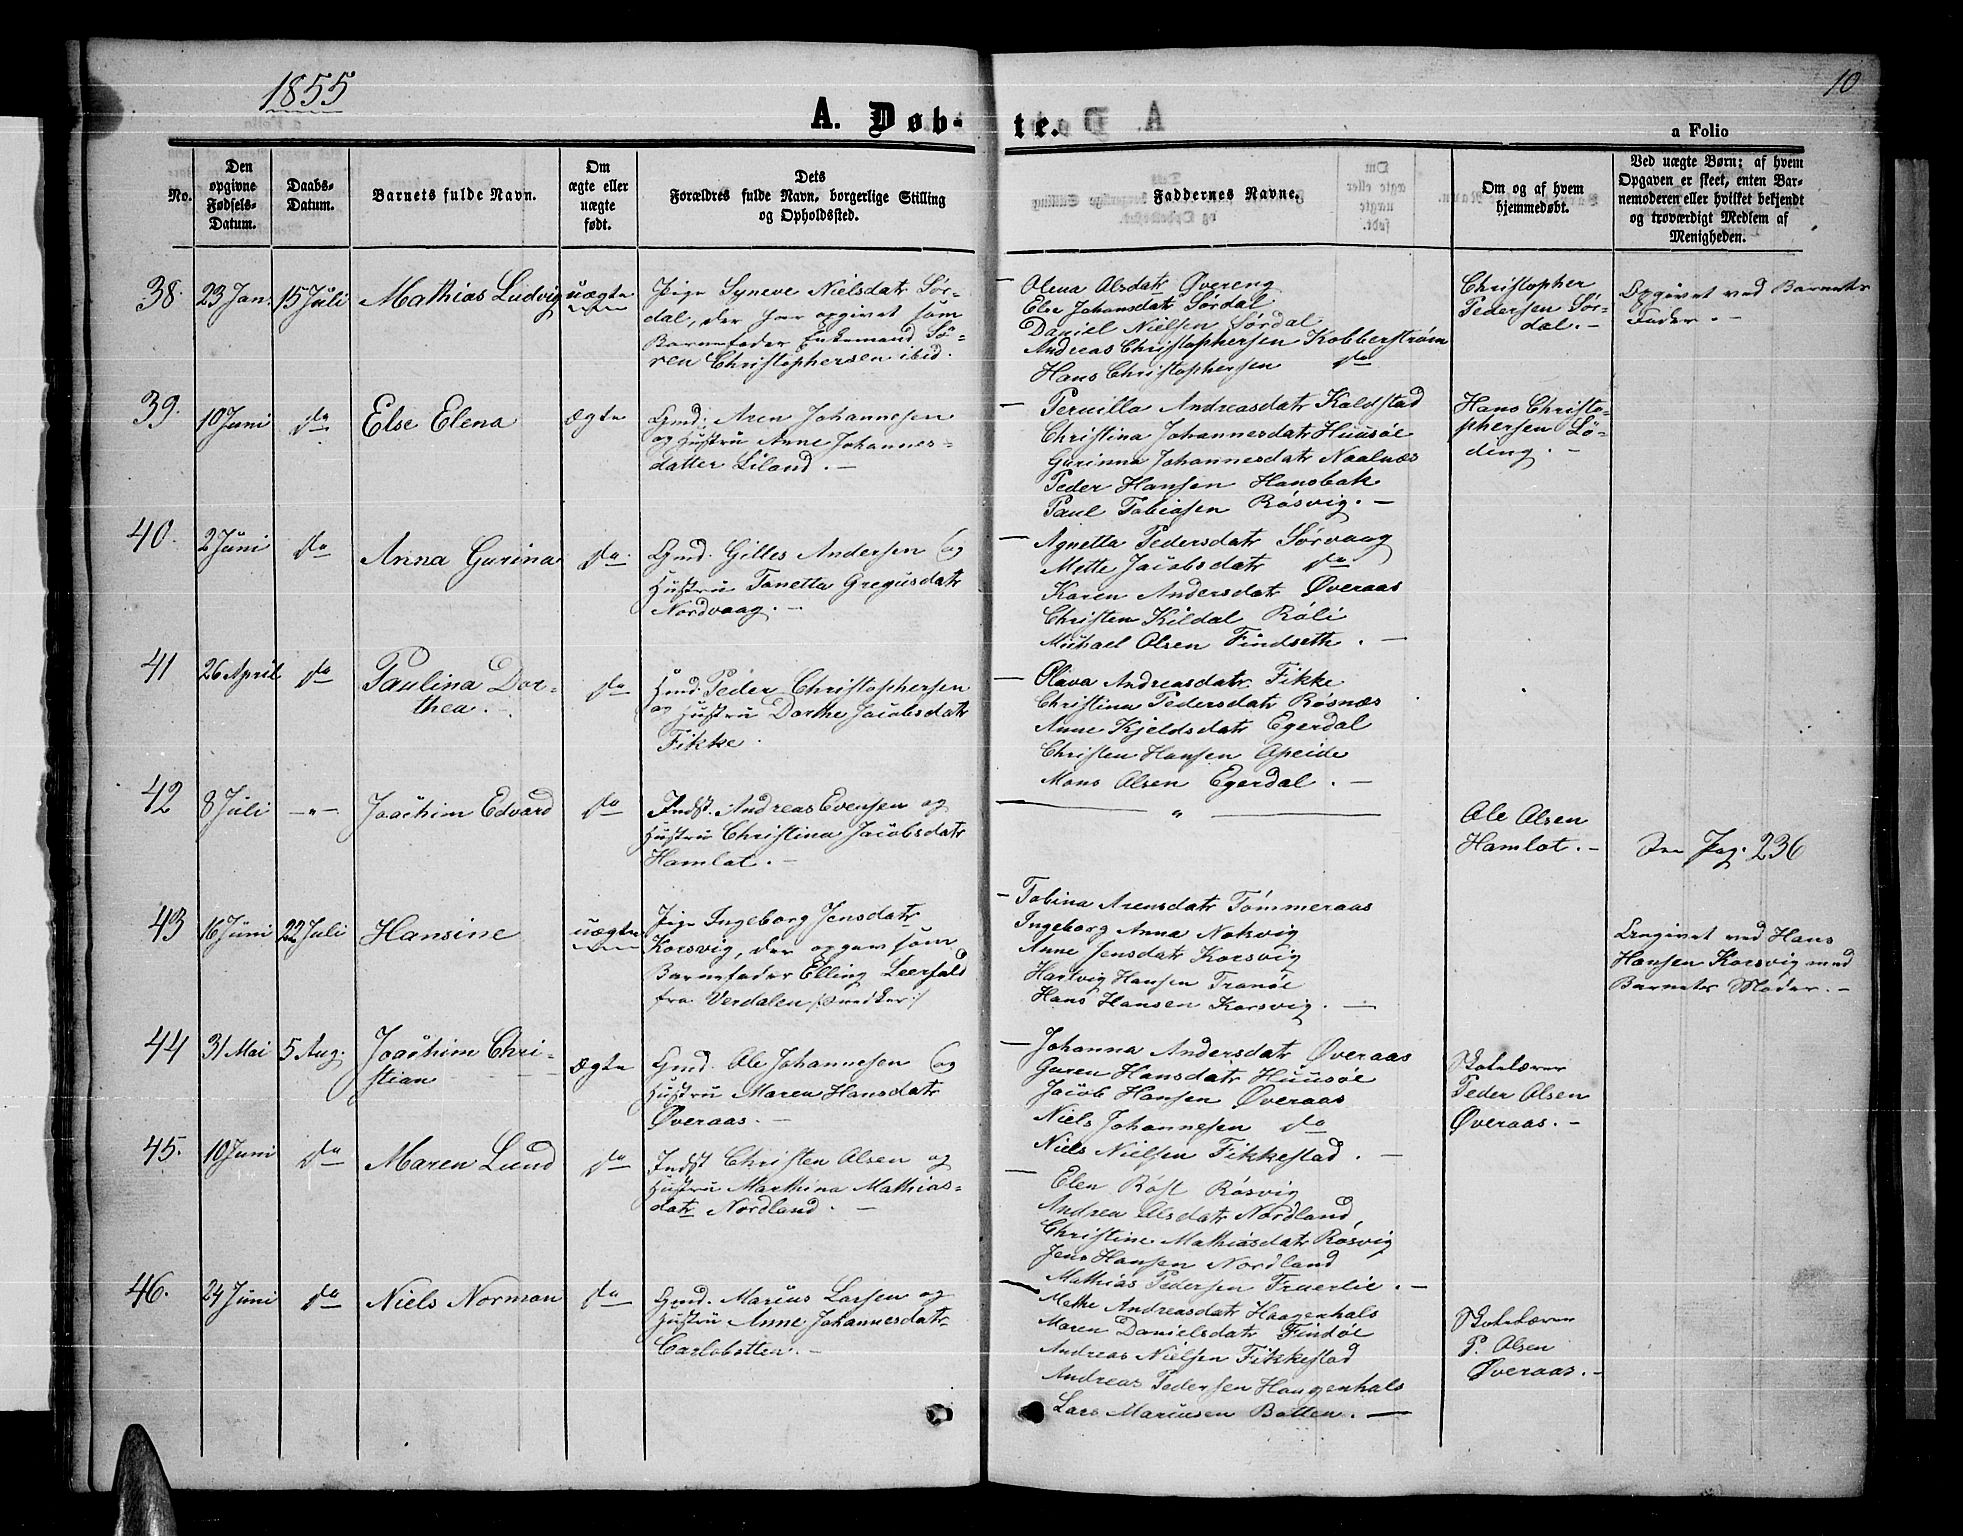 1855
10
A. Døb-
te.
a Folio
No.
Den
opgivne
Fødsels-
Datum.
Daabs-
Datum.
Barnets fulde Navn.
Om
ægte eller
uægte
født.
Dets
Forældres fulde Navn, borgerlige Stilling
og Opholdssted.
Faddernes Navne.
Om og af hvem
hjemmedøbt.
Ved uægte Børn; af hvem
Opgaven er skeet, enten Bar-
nemoderen eller hvilket bekjendt
og troværdigt Medlem af
Menigheden.
38.
23 Jan.
15 Juli
Mathias Ludvig
uægte
Pige Syneve Nielsdatr Sør-
dal, der har opgivet som
Barnefader Enkemand Sö-
ren Christophersen ibid.
— Olena Olsdatr Øvereng
Else Johansdatr Sørdal
Daniel Nielsen Sørdal
Andreas Christophersen Kobberstrøm
Hans Christophersen do
Christopher
Pedersen Sør-
dal. —
Opgivet ved Barnets
Fader. —
39.
10 Juni
do
Else Elena
ægte
Gmd. Aren Johannesen
og Hustru Anne Johannes-
datter Liland. —
— Pernilla Andreasdatr Kaldstad
Christina Johannesdatr Huusöe
Gurinna Johannesdatr Naalnæs
Peder Hansen Hansbak
Paul Tobiasen Rösvig. —
Hans Christo-
phersen Lö-
ding. —
40.
2 Juni
do
Anna Gurina
do.
Gmd. Gilles Andersen og
Hustru Tanetta Gregusdatr
Nordvaag. —
— Agnetta Pedersdatr Sørvaag
Mette Jacobsdatr do
Karen Andersdatr Øveraas
Christen Kildal Röli
Michael Olsen Findseth. —
41
26 April
do
Paulina Dor-
thea. —
do
Hmd. Peder Christophersen
og Hustru Dorthe Jacobsdatr
Fikke.
— Olava Andreasdatr Fikke
Christina Pedersdatr Røsnæs
Anne Kjeldsdatr Egerdal
Christen Hansen Opeide
Mons Olsen Egerdal. —
42
8 Juli
— " —
Joachim Edvard
do
Indst. Andreas Evensen og
Hustru Christina Jacobsdatr
Hamlot. —
— " —
Ole Olsen
Hamlot. —
Pag. 236
43
16 Juni
22 Juli
Hansine
uægte
Pige Ingeborg Jensdatr
Korsvig, der opgav som
Barnefader Elling Leerfald
fra Verdalen
— Tobina Arensdatr Tömmeraas
Ingeborg Anna Nokvig
Anne Jensdatr Korsvig
Hartvig Hansen Tranöe
Hans Hansen Korsvig. —
Angivet ved Hans
Hansen Korsvig med
Barnets Moder. —
44
31 Mai
5 Aug.
Joachim Chri-
stian
ægte
Gmd. Ole Johannesen og
Hustru Maren Hansdatr
Øveraas. —
— Johanna Andersdatr Øveraas
Guren Hansdatr Huusöe
Jacob Hansen Øveraas
Niels Johannesen do
Niels Nielsen Fikkestad. —
Skolelærer
Peder Olsen
Øveraas. —
45.
10 Juni
do
Maren Lund
do
Indst Christen Olsen og
Hustru Marthina Mathias-
datr Nordland. —
— Elen Röst Rösvig
Andrea Olsdatr Nordland,
Christine Mathiasdatr Rösvig
Jens Hansen Nordland
Mathias Pedersen Truerlie. —
46.
24 Juni
do
Niels Norman
do
Gmd. Marius Larsen og
Hustru Anne Johannesdatr
Carlsbotten. —
— Mette Andreasdatr Haagenhals
Maren Danielsdatr Findöe
Andreas Nielsen Fikkestad
Andreas Pedersen Haugenhals
Lars Mariusen Botten. —
Skolelærer
P. Olsen
Øveraas. —